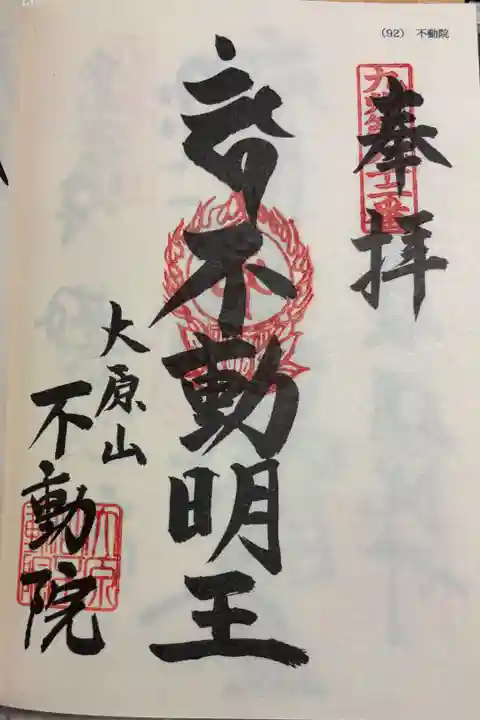 （92） 不動院
奉拝
不動明王
大原山
不動院